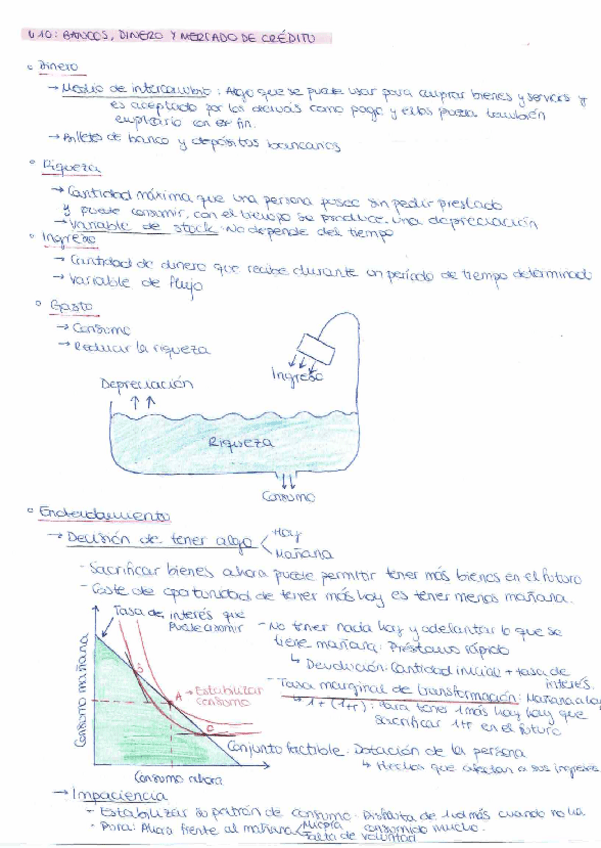 U10: BANCOS, DINERO Y MERCADO DE CRÉDITO
Dinero
→ Medio de intercambio: Algo que se puede usar para comprar bienes y servicios y
es aceptado por los demás como pago y ellos puedan también
emplearlo con ese fin.
→ Billetes de banco y depósitos bancarios
Riqueza
→ Cantidad máxima que una persona posee sin pedir prestado
y puede consumir, con el tiempo se produce una depreciación
→ Variable de stock. No depende del tiempo
Ingreso
→ Cantidad de dinero que recibe durante un período de tiempo determinado
→ Variable de flujo
Gasto
→ Consumo
→ Reducir la riqueza
Ingreso
Depreciación
Riqueza
Consumo
Endeudamiento
→ Decisión de tener algo
Hoy
Mañana
- Sacrificar bienes ahora puede permitir tener más bienes en el futuro
- Coste de oportunidad de tener más hoy es tener menos mañana.
Tasa de interés que
puede asumir
- No tener nada hoy y adelantar lo que se
tiene mañana: Préstamo rápido
↳ Devolución: Cantidad inicial + tasa de
interés.
- Tasa marginal de transformación: Mañana a hoy
↳ 1+(1+r): Para tener 1 más hoy hay que
sacrificar 1+r en el futuro
Consumo mañana
A → Estabilizar
consumo
C
Conjunto factible. Dotación de la persona
↳ Hechos que afectan a sus ingresos
Consumo ahora
→ Impaciencia
- Estabilizar su patrón de consumo. Disfruta de 1 ud más cuando no ha
consumido mucho.
- Pura: Ahora frente al mañana
Miopía
Falta de voluntad